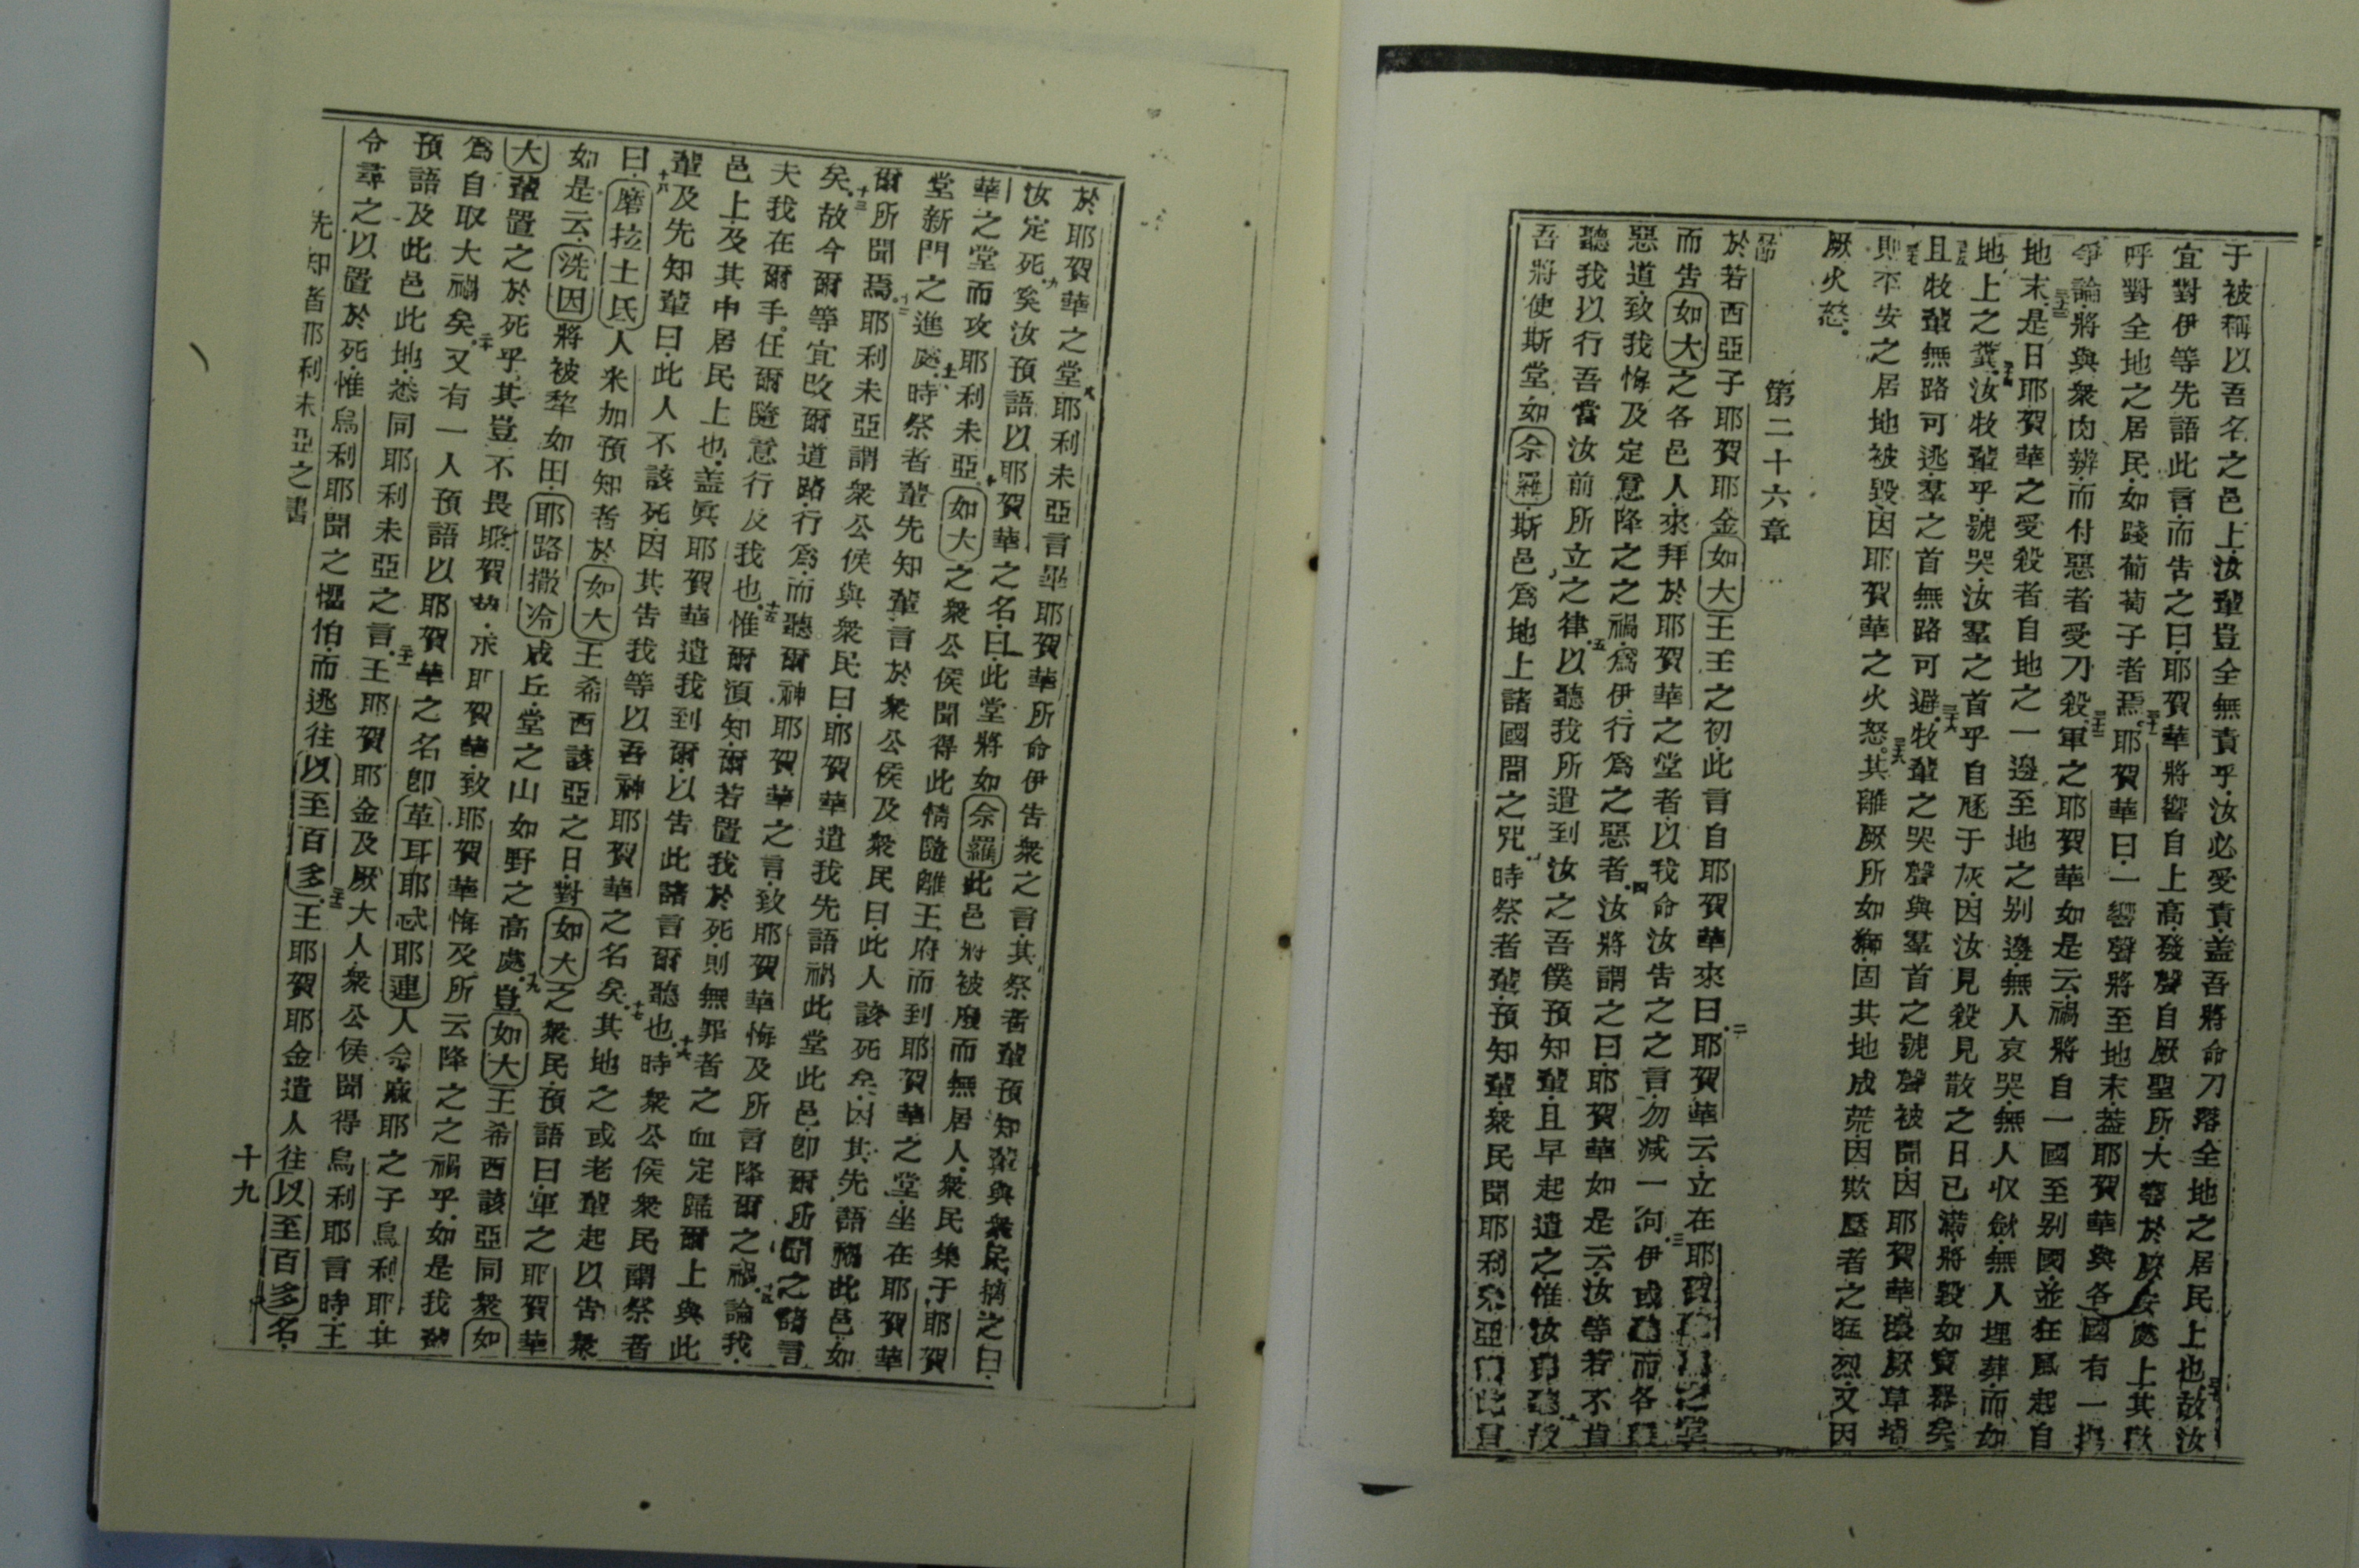 于被稱以吾名之邑上汝輩豈全無責乎汝必受責蓋吾將命刀落全地之居民上也三十故汝
宜對伊等先語此言而告之曰耶賀華將響自上高發聲自厥聖所大響於厥安處上其
呼對全地之居民如踐葡萄子者焉三十一耶賀華曰一響聲將至地末蓋耶賀華與各國有一
爭論將與衆肉辨而付惡者受刀殺三十二軍之耶賀華如是云禍將自一國至別國並狂風起自
地末三十三是日耶賀華之受殺者自地之一邊至地之別邊無人哀哭無人收斂無人埋葬而如
地上之糞三十四汝牧輩乎號哭汝羣之首乎自𢌞于灰因汝見殺見散之日已滿將毀如寶器矣
三十五且牧輩無路可逃羣之首無路可避三十六牧輩之哭聲與羣首之號聲被聞因耶賀華壞厥草場
三十七則平安之居地被毀因耶賀華之火怒三十八其離厥所如獅固其地成荒因欺壓者之猛烈又因
厥火怒
第二十六章
一節於若西亞子耶賀耶金如大王王之初此言自耶賀華來曰二耶賀華云立在耶賀華之堂
而告如大之各邑人來拜於耶賀華之堂者以我命汝告之之言勿減一句三伊或聽而各
惡道致我悔及定意降之之禍爲伊行爲之惡者四汝將謂之曰耶賀華如是云汝等若不肯
聽我以行吾當汝前所立之律五以聽我所遣到汝之吾僕預知輩且早起遣之惟汝弗聽六故
吾將使斯堂如佘羅斯邑爲地上諸國間之咒七時祭者輩預知輩衆民聞耶利未亞言此言
於耶賀華之堂八耶利未亞言畢耶賀華所命伊告衆之言其祭者輩預知輩與衆民擒之曰
汝定死矣九汝預語以耶賀華之名曰此堂將如佘羅此邑將被廢而無居人衆民集于耶賀
華之堂而攻耶利未亞十如大之衆公侯聞得此情隨離王府而到耶賀華之堂坐在耶賀華
堂新門之進處十一時祭者輩先知輩言於衆公侯及衆民曰此人該死矣因其先語禍此邑如
爾所聞焉十二耶利未亞謂衆公侯與衆民曰耶賀華遣我先語禍此堂此邑卽爾所聞之諸言
矣十三故今爾等宜改爾道路行爲而聽爾神耶賀華之言致耶賀華悔及所言降爾之禍十四論我
夫我在爾手任爾隨意行及我也十五惟爾須知爾若置我於死則無罪者之血定歸爾上與此
邑上及其中居民上也蓋眞耶賀華遣我到爾以告此諸言爾聽也十六時衆公侯衆民謂祭者
輩及先知輩曰此人不該死因其告我等以吾神耶賀華之名矣十七其地之或老輩起以告衆
曰十八磨拉士氏人米加預知者於如大王希西該亞之日對如大之衆民預語曰軍之耶賀華
如是云洗因將被犂如田耶路撒冷成丘堂之山如野之高處十九豈如大王希西該亞同衆如
大輩置之於死乎其豈不畏耶賀華求耶賀華致耶賀華悔及所云降之之禍乎如是我輩
爲自取大禍矣二十又有一人預語以耶賀華之名卽革耳耶忒耶連人佘麻耶之子烏利耶其
預語及此邑此地悉同耶利未亞之言二十一王耶賀耶金及厥大人衆公侯聞得烏利耶言時王
令尋之以置於死惟烏利耶聞之懼怕而逃往以至百多二十二王耶賀耶金遣人往以至百多名
先知者耶利未亞之書
十九